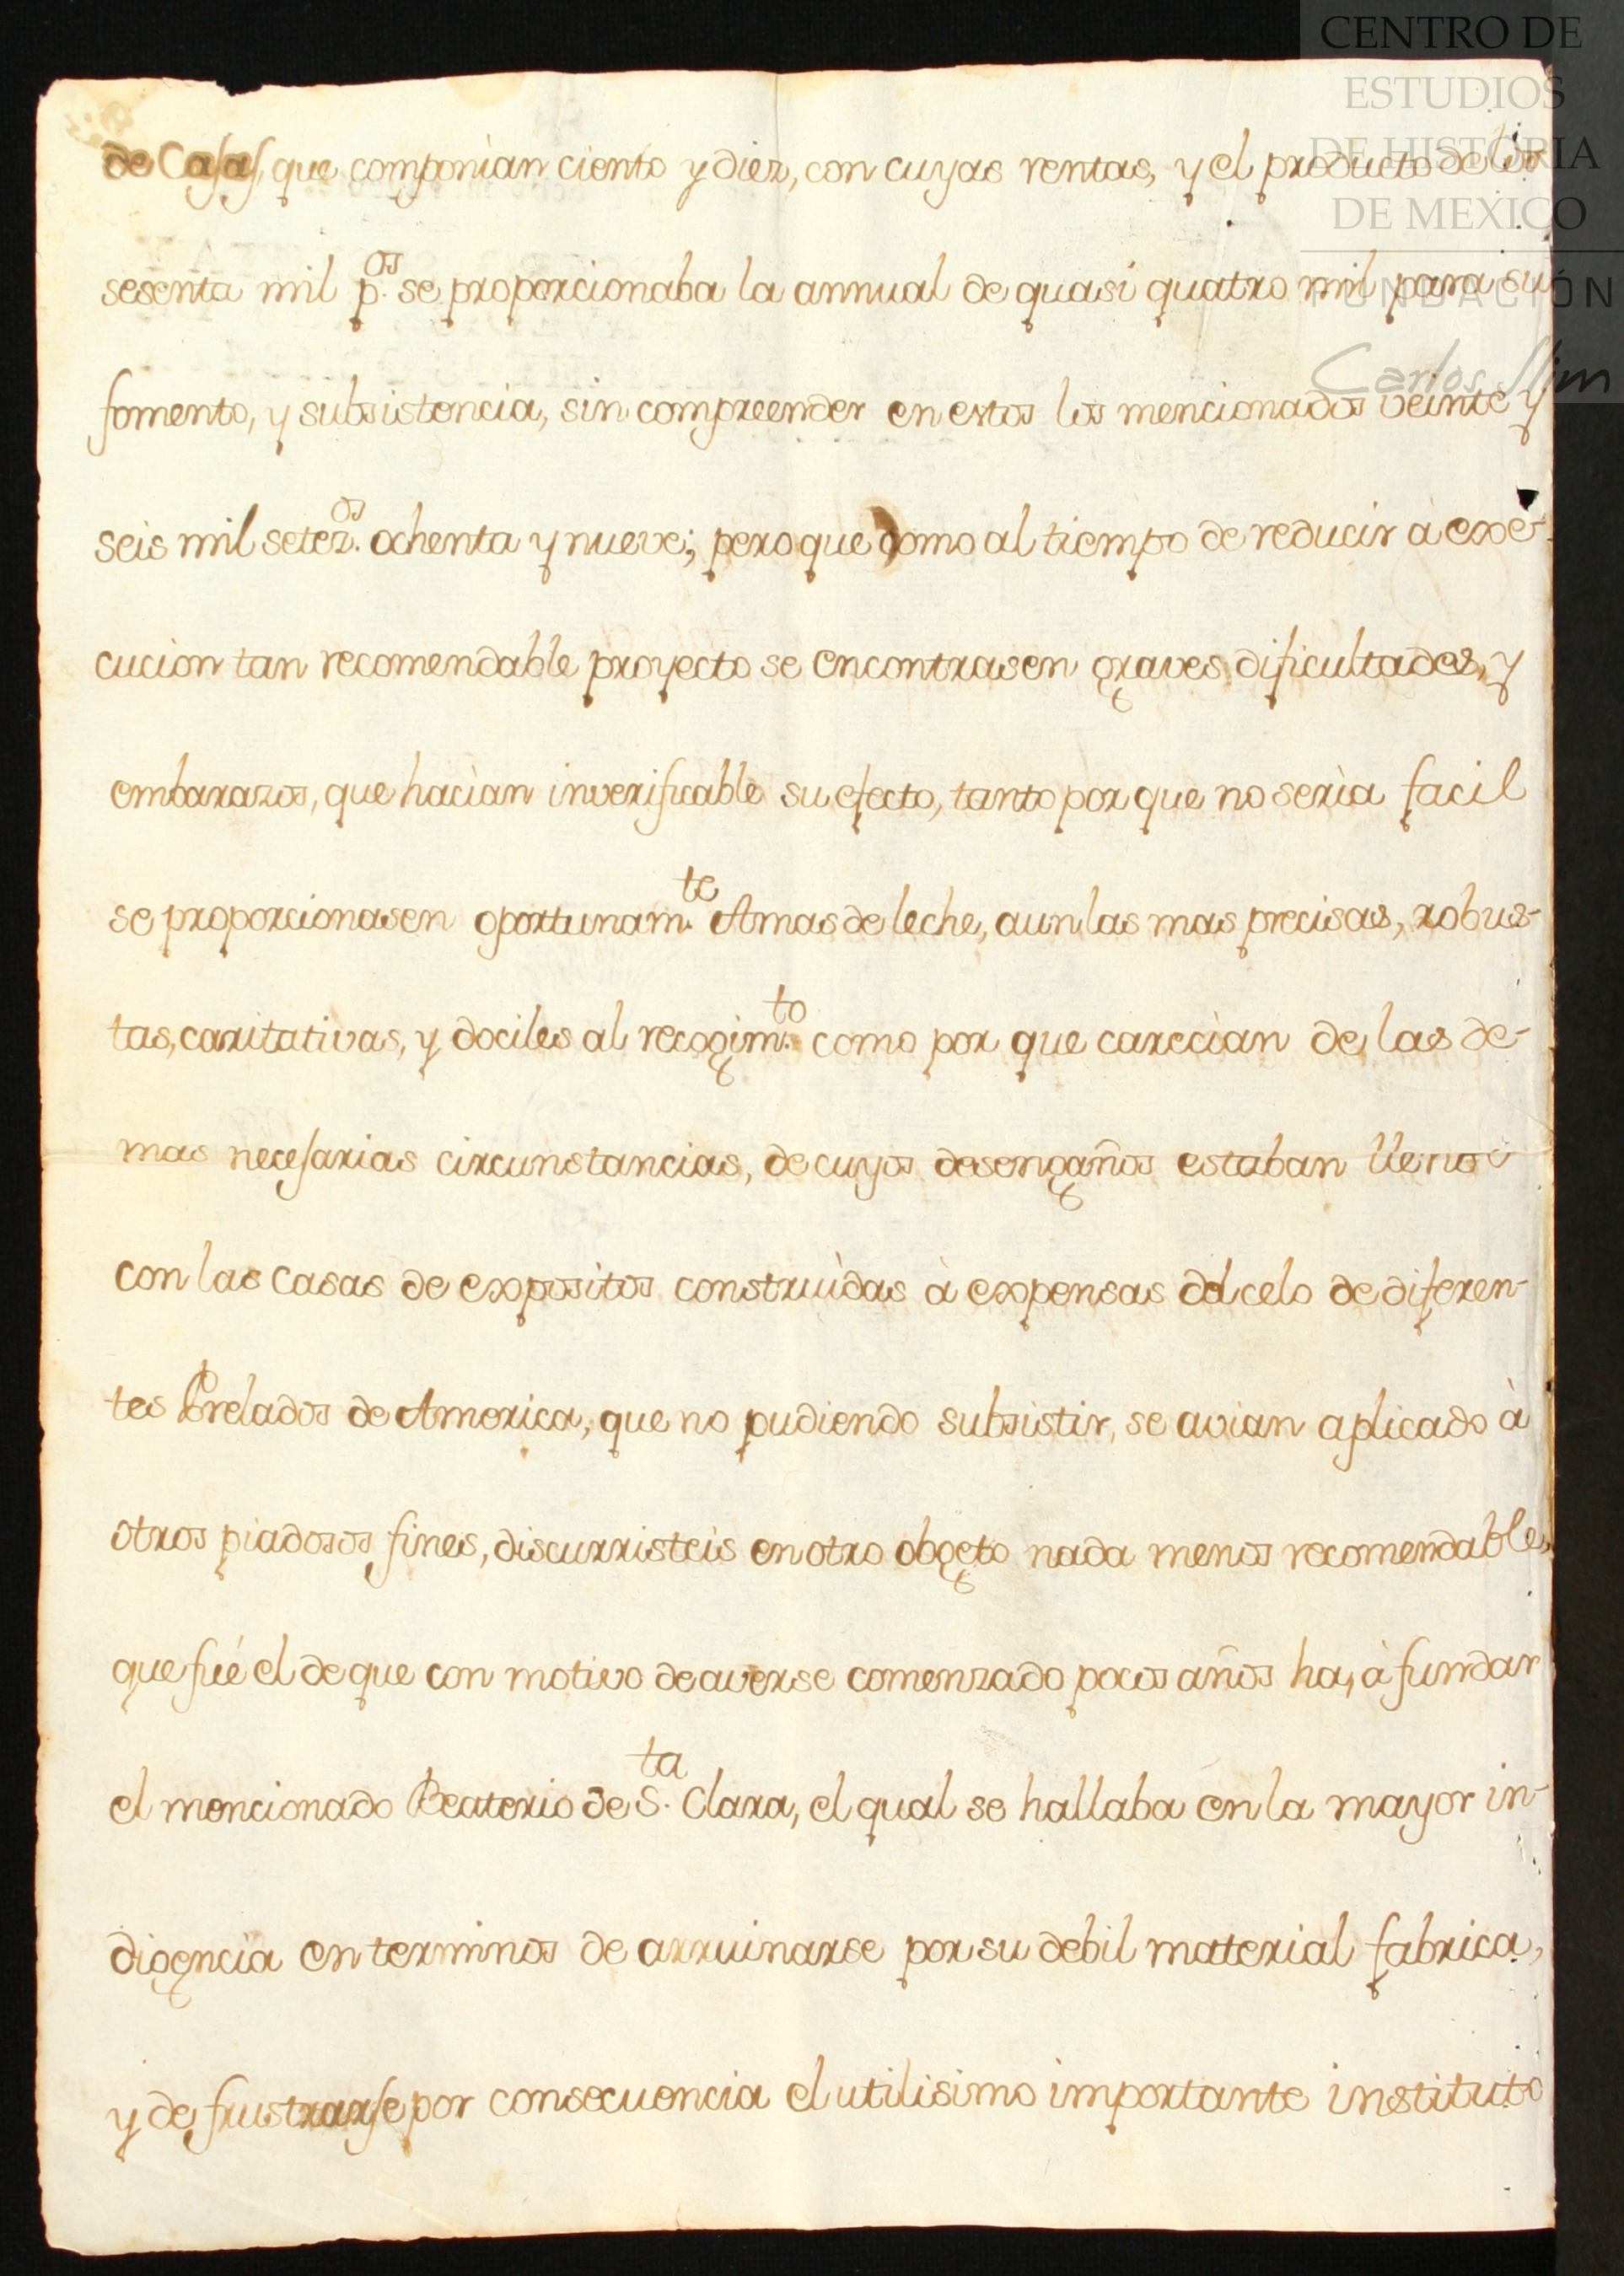 CENTRO DE
ESTUDIOS
DE HISTORIA
DE MEXICO
FUNDACIÓN
Carlos Slim
de Casas, que componìan ciento y diez, con cuyas rentas, y el producto de los
sesenta mil p.os se proporcionaba la annual de quasi quatro mil para su
fomento, y subsistencia, sin compreender en estos los mencionados veinte y
seis mil setez.os ochenta y nueve; pero que como al tiempo de reducir à exe-
cucion tan recomendable proyecto se encontrasen graves dificultades, y
embarazos, que hacìan inverificable su efecto, tanto por que no serìa facil
se proporcionasen oportunam.te Amas de leche, aun las mas precisas, robus-
tas, caritativas, y dociles al recogim.to como por que carecìan de las de-
mas necesarias circunstancias, de cuyos desengaños estaban llenos
con las Casas de expositos construìdas à expensas del celo de diferen-
tes Prelados de America, que no pudiendo subsistir, se avian aplicado à
otros piadosos fines, discurristeis en otro obgeto nada menos recomendable,
que fué el de que con motivo de averse comenzado pocos años ha, à fundar
el mencionado Beaterio de S.ta Clara, el qual se hallaba en la mayor in-
digencia en terminos de arruinarse por su debil material fabrica,
y de frustrarse por consecuencia el utilisimo importante instituto